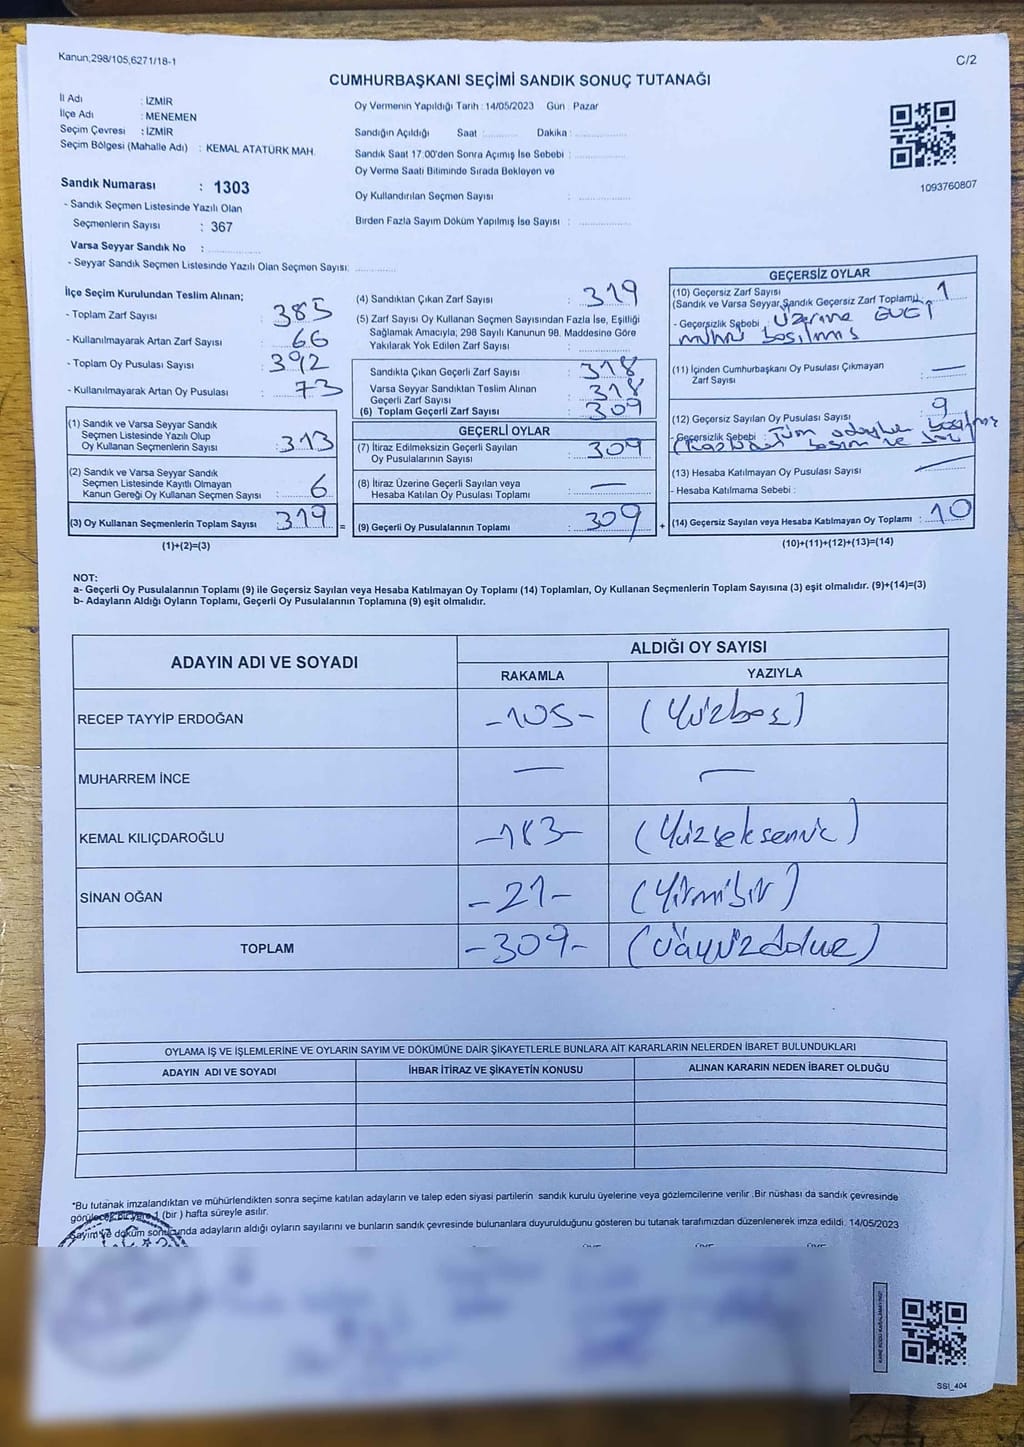 Kanun;298/105,6271/18-1
C/2
CUMHURBAŞKANI SEÇİMİ SANDIK SONUÇ TUTANAĞI
İl Adı : İZMİR
İlçe Adı : MENEMEN
Seçim Çevresi : İZMİR
Seçim Bölgesi (Mahalle Adı) : KEMAL ATATÜRK MAH.
Sandık Numarası : 1303
- Sandık Seçmen Listesinde Yazılı Olan
Seçmenlerin Sayısı : 367
Varsa Seyyar Sandık No :
- Seyyar Sandık Seçmen Listesinde Yazılı Olan Seçmen Sayısı:
Oy Vermenin Yapıldığı Tarih : 14/05/2023 Gün : Pazar
Sandığın Açıldığı Saat Dakika :
Sandık Saat 17.00'den Sonra Açımış İse Sebebi :
Oy Verme Saati Bitiminde Sırada Bekleyen ve
Oy Kullandırılan Seçmen Sayısı :
Birden Fazla Sayım Döküm Yapılmış İse Sayısı :
1093760807
İlçe Seçim Kurulundan Teslim Alınan;
- Toplam Zarf Sayısı : 385
- Kullanılmayarak Artan Zarf Sayısı : 66
- Toplam Oy Pusulası Sayısı : 392
- Kullanılmayarak Artan Oy Pusulası : 73
(1) Sandık ve Varsa Seyyar Sandık
Seçmen Listesinde Yazılı Olup
Oy Kullanan Seçmenlerin Sayısı : 313
(2) Sandık ve Varsa Seyyar Sandık
Seçmen Listesinde Kayıtlı Olmayan
Kanun Gereği Oy Kullanan Seçmen Sayısı : 6
(3) Oy Kullanan Seçmenlerin Toplam Sayısı : 319 =
(1)+(2)=(3)
(4) Sandıktan Çıkan Zarf Sayısı : 319
(5) Zarf Sayısı Oy Kullanan Seçmen Sayısından Fazla İse, Eşitliği
Sağlamak Amacıyla; 298 Sayılı Kanunun 98. Maddesine Göre
Yakılarak Yok Edilen Zarf Sayısı :
Sandıkta Çıkan Geçerli Zarf Sayısı : 318
Varsa Seyyar Sandıktan Teslim Alınan
Geçerli Zarf Sayısı : 318
(6) Toplam Geçerli Zarf Sayısı : 309
GEÇERLİ OYLAR
(7) İtiraz Edilmeksizin Geçerli Sayılan
Oy Pusulalarının Sayısı : 309
(8) İtiraz Üzerine Geçerli Sayılan veya
Hesaba Katılan Oy Pusulası Toplamı : —
(9) Geçerli Oy Pusulalarının Toplamı : 309 +
GEÇERSİZ OYLAR
(10) Geçersiz Zarf Sayısı
(Sandık ve Varsa Seyyar Sandık Geçersiz Zarf Toplamı) : 1
- Geçersizlik Sebebi : Üzerine EVET
mührü basılmış
(11) İçinden Cumhurbaşkanı Oy Pusulası Çıkmayan
Zarf Sayısı : —
(12) Geçersiz Sayılan Oy Pusulası Sayısı : 9
- Geçersizlik Sebebi : Tüm adaylara basılmış
(13) Hesaba Katılmayan Oy Pusulası Sayısı : —
- Hesaba Katılmama Sebebi :
(14) Geçersiz Sayılan veya Hesaba Katılmayan Oy Toplamı : 10
(10)+(11)+(12)+(13)=(14)
NOT:
a- Geçerli Oy Pusulalarının Toplamı (9) ile Geçersiz Sayılan veya Hesaba Katılmayan Oy Toplamı (14) Toplamları, Oy Kullanan Seçmenlerin Toplam Sayısına (3) eşit olmalıdır. (9)+(14)=(3)
b- Adayların Aldığı Oyların Toplamı, Geçerli Oy Pusulalarının Toplamına (9) eşit olmalıdır.
ADAYIN ADI VE SOYADI
ALDIĞI OY SAYISI
RAKAMLA YAZIYLA
RECEP TAYYİP ERDOĞAN -105- (Yüzbeş)
MUHARREM İNCE — —
KEMAL KILIÇDAROĞLU -183- (Yüzseksenüç)
SİNAN OĞAN -21- (Yirmibir)
TOPLAM -309- (Üçyüzdokuz)
OYLAMA İŞ VE İŞLEMLERİNE VE OYLARIN SAYIM VE DÖKÜMÜNE DAİR ŞİKAYETLERLE BUNLARA AİT KARARLARIN NELERDEN İBARET BULUNDUKLARI
ADAYIN ADI VE SOYADI İHBAR İTİRAZ VE ŞİKAYETİN KONUSU ALINAN KARARIN NEDEN İBARET OLDUĞU
*Bu tutanak imzalandıktan ve mühürlendikten sonra seçime katılan adayların ve talep eden siyasi partilerin sandık kurulu üyelerine veya gözlemcilerine verilir .Bir nüshası da sandık çevresinde
görülecek bir yere 1 (bir ) hafta süreyle asılır.
Sayım ve döküm sonucunda adayların aldığı oyların sayılarını ve bunların sandık çevresinde bulunanlara duyurulduğunu gösteren bu tutanak tarafımızdan düzenlenerek imza edildi. 14/05/2023
SSI_404